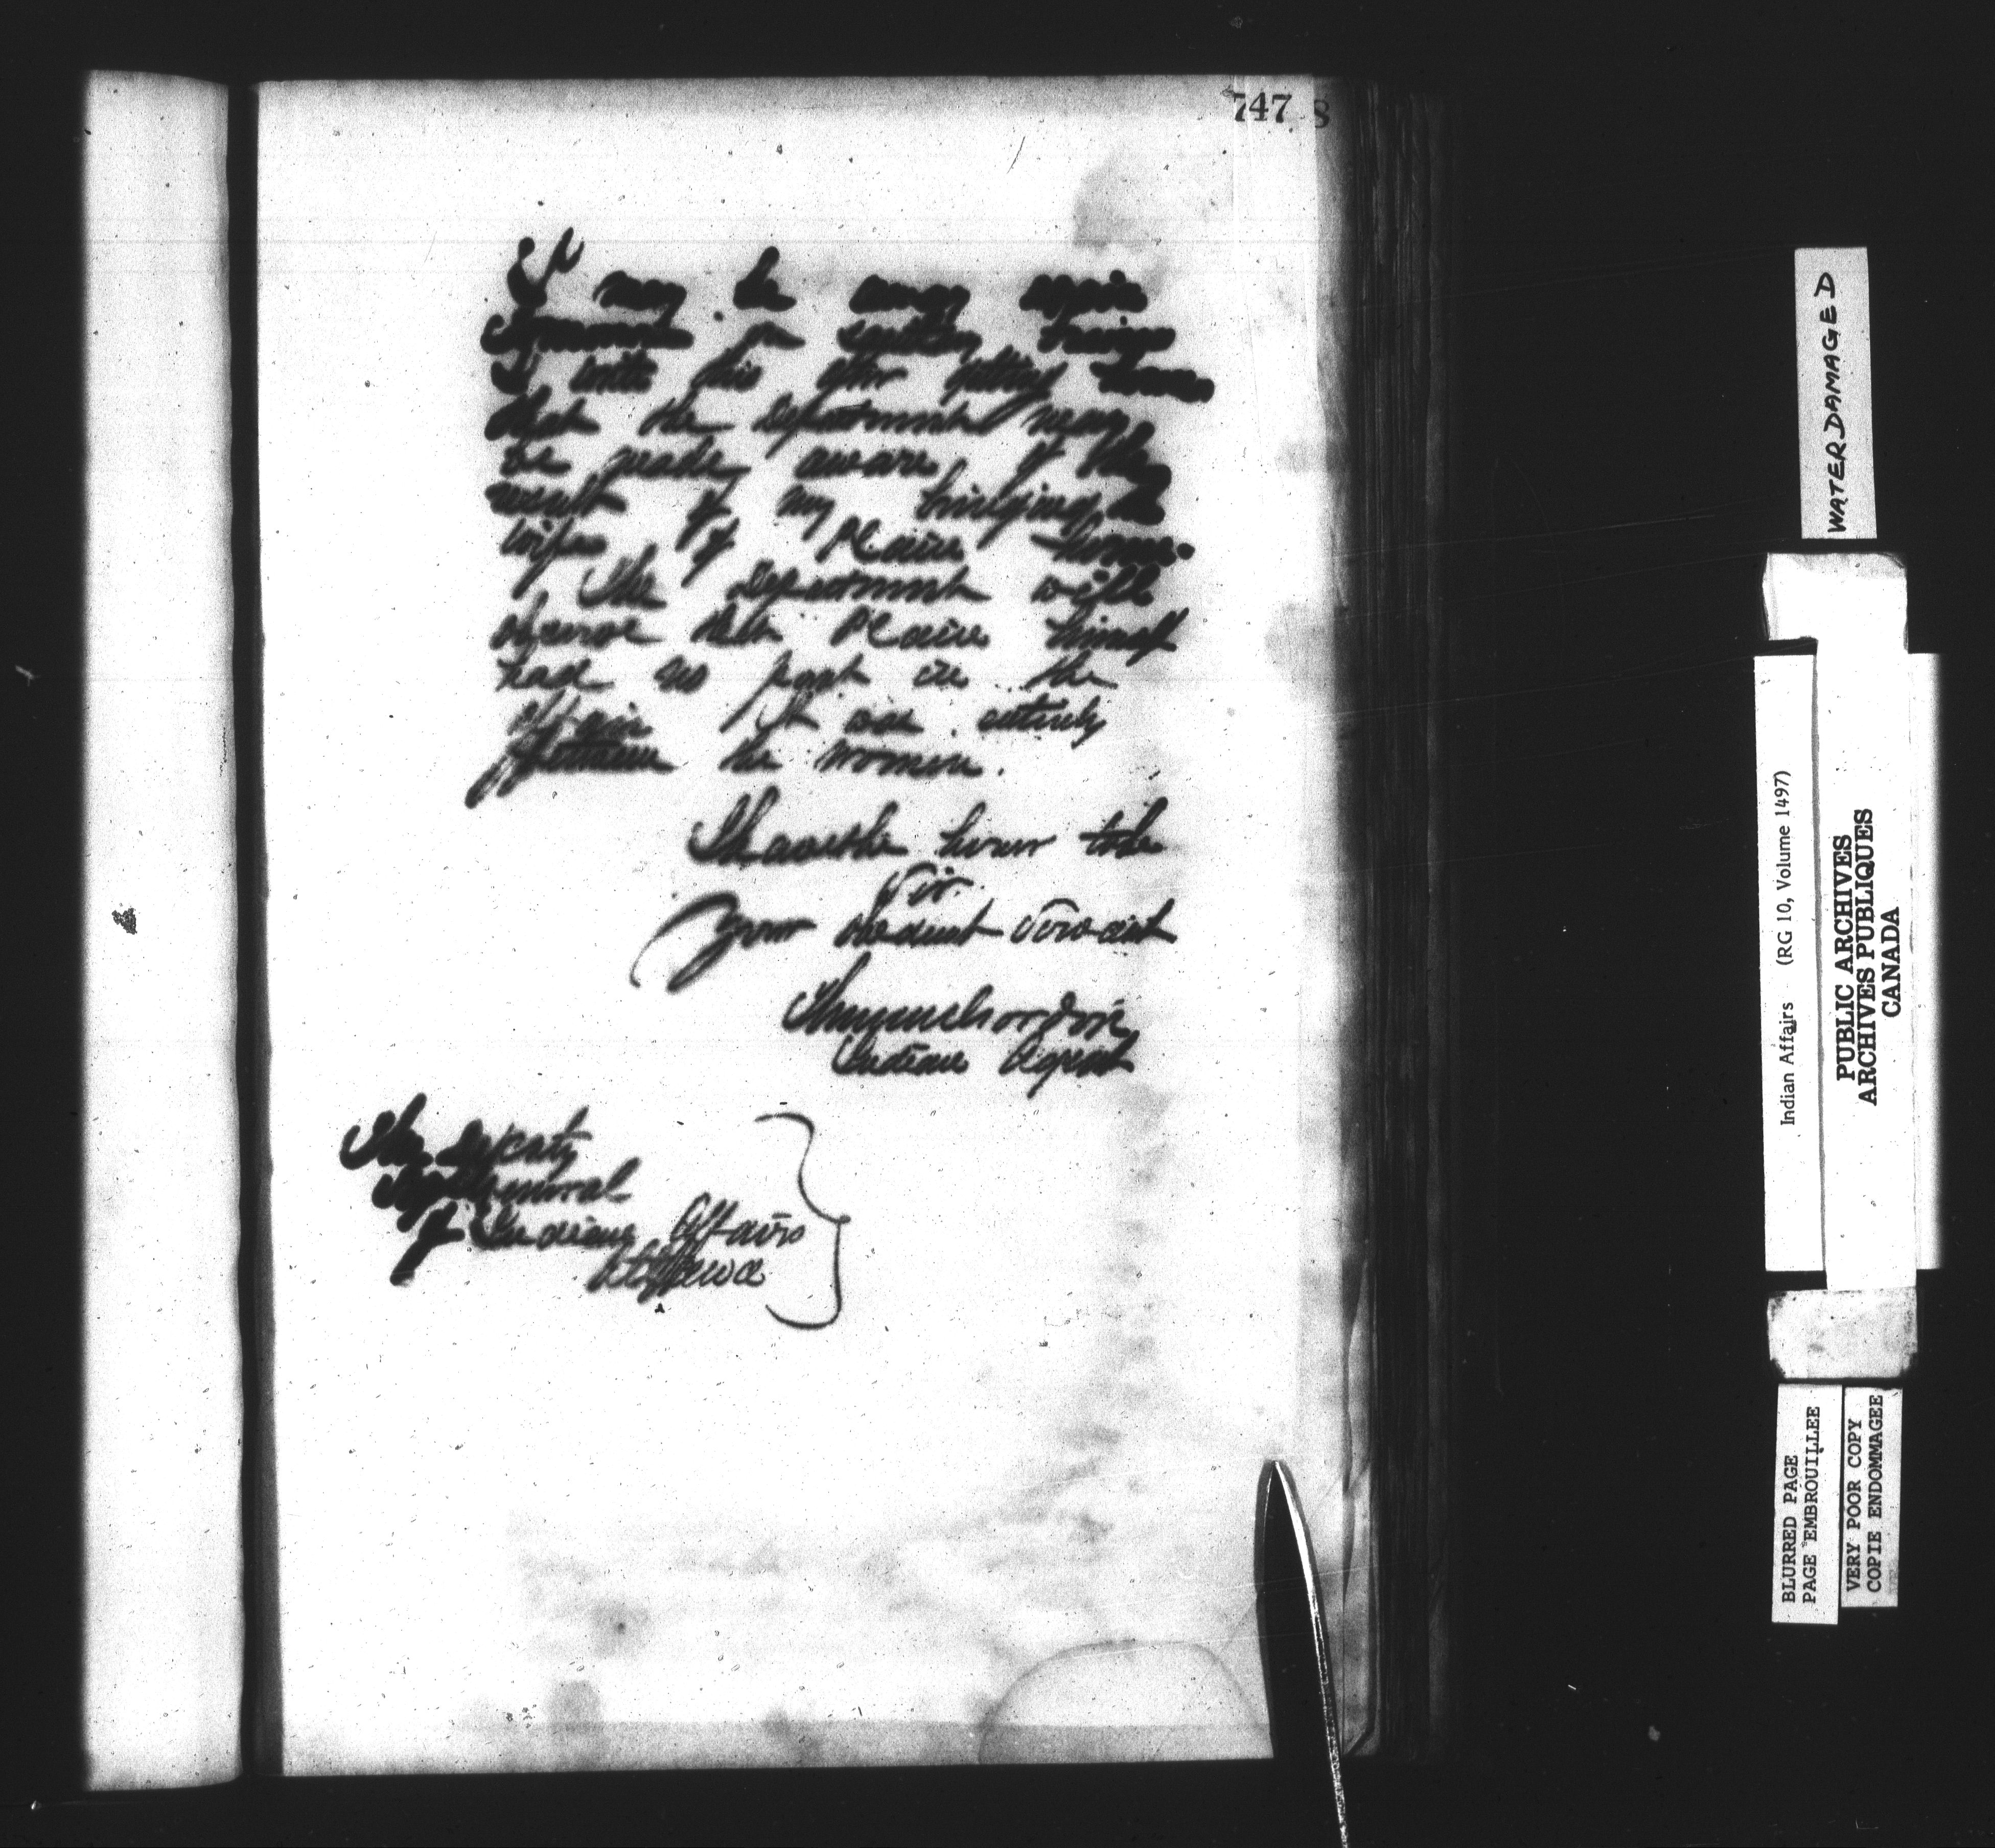 747 8
I may be away again
on
I write this after getting home
that the Department may
be made aware of the
result of my bringing the
wife of Plain home.
The Department will
observe that Plain himself
had no part in the
affair It was entirely
between the women.
I have the honor to be
Sir
Your obedient servant
Indian Agent
The Deputy
Supt General
of Indian Affairs
Ottawa
WATERDAMAGED
Indian Affairs (RG 10, Volume 1497)
PUBLIC ARCHIVES
ARCHIVES PUBLIQUES
CANADA
BLURRED PAGE
PAGE EMBROUILLEE
VERY POOR COPY
COPIE ENDOMMAGEE